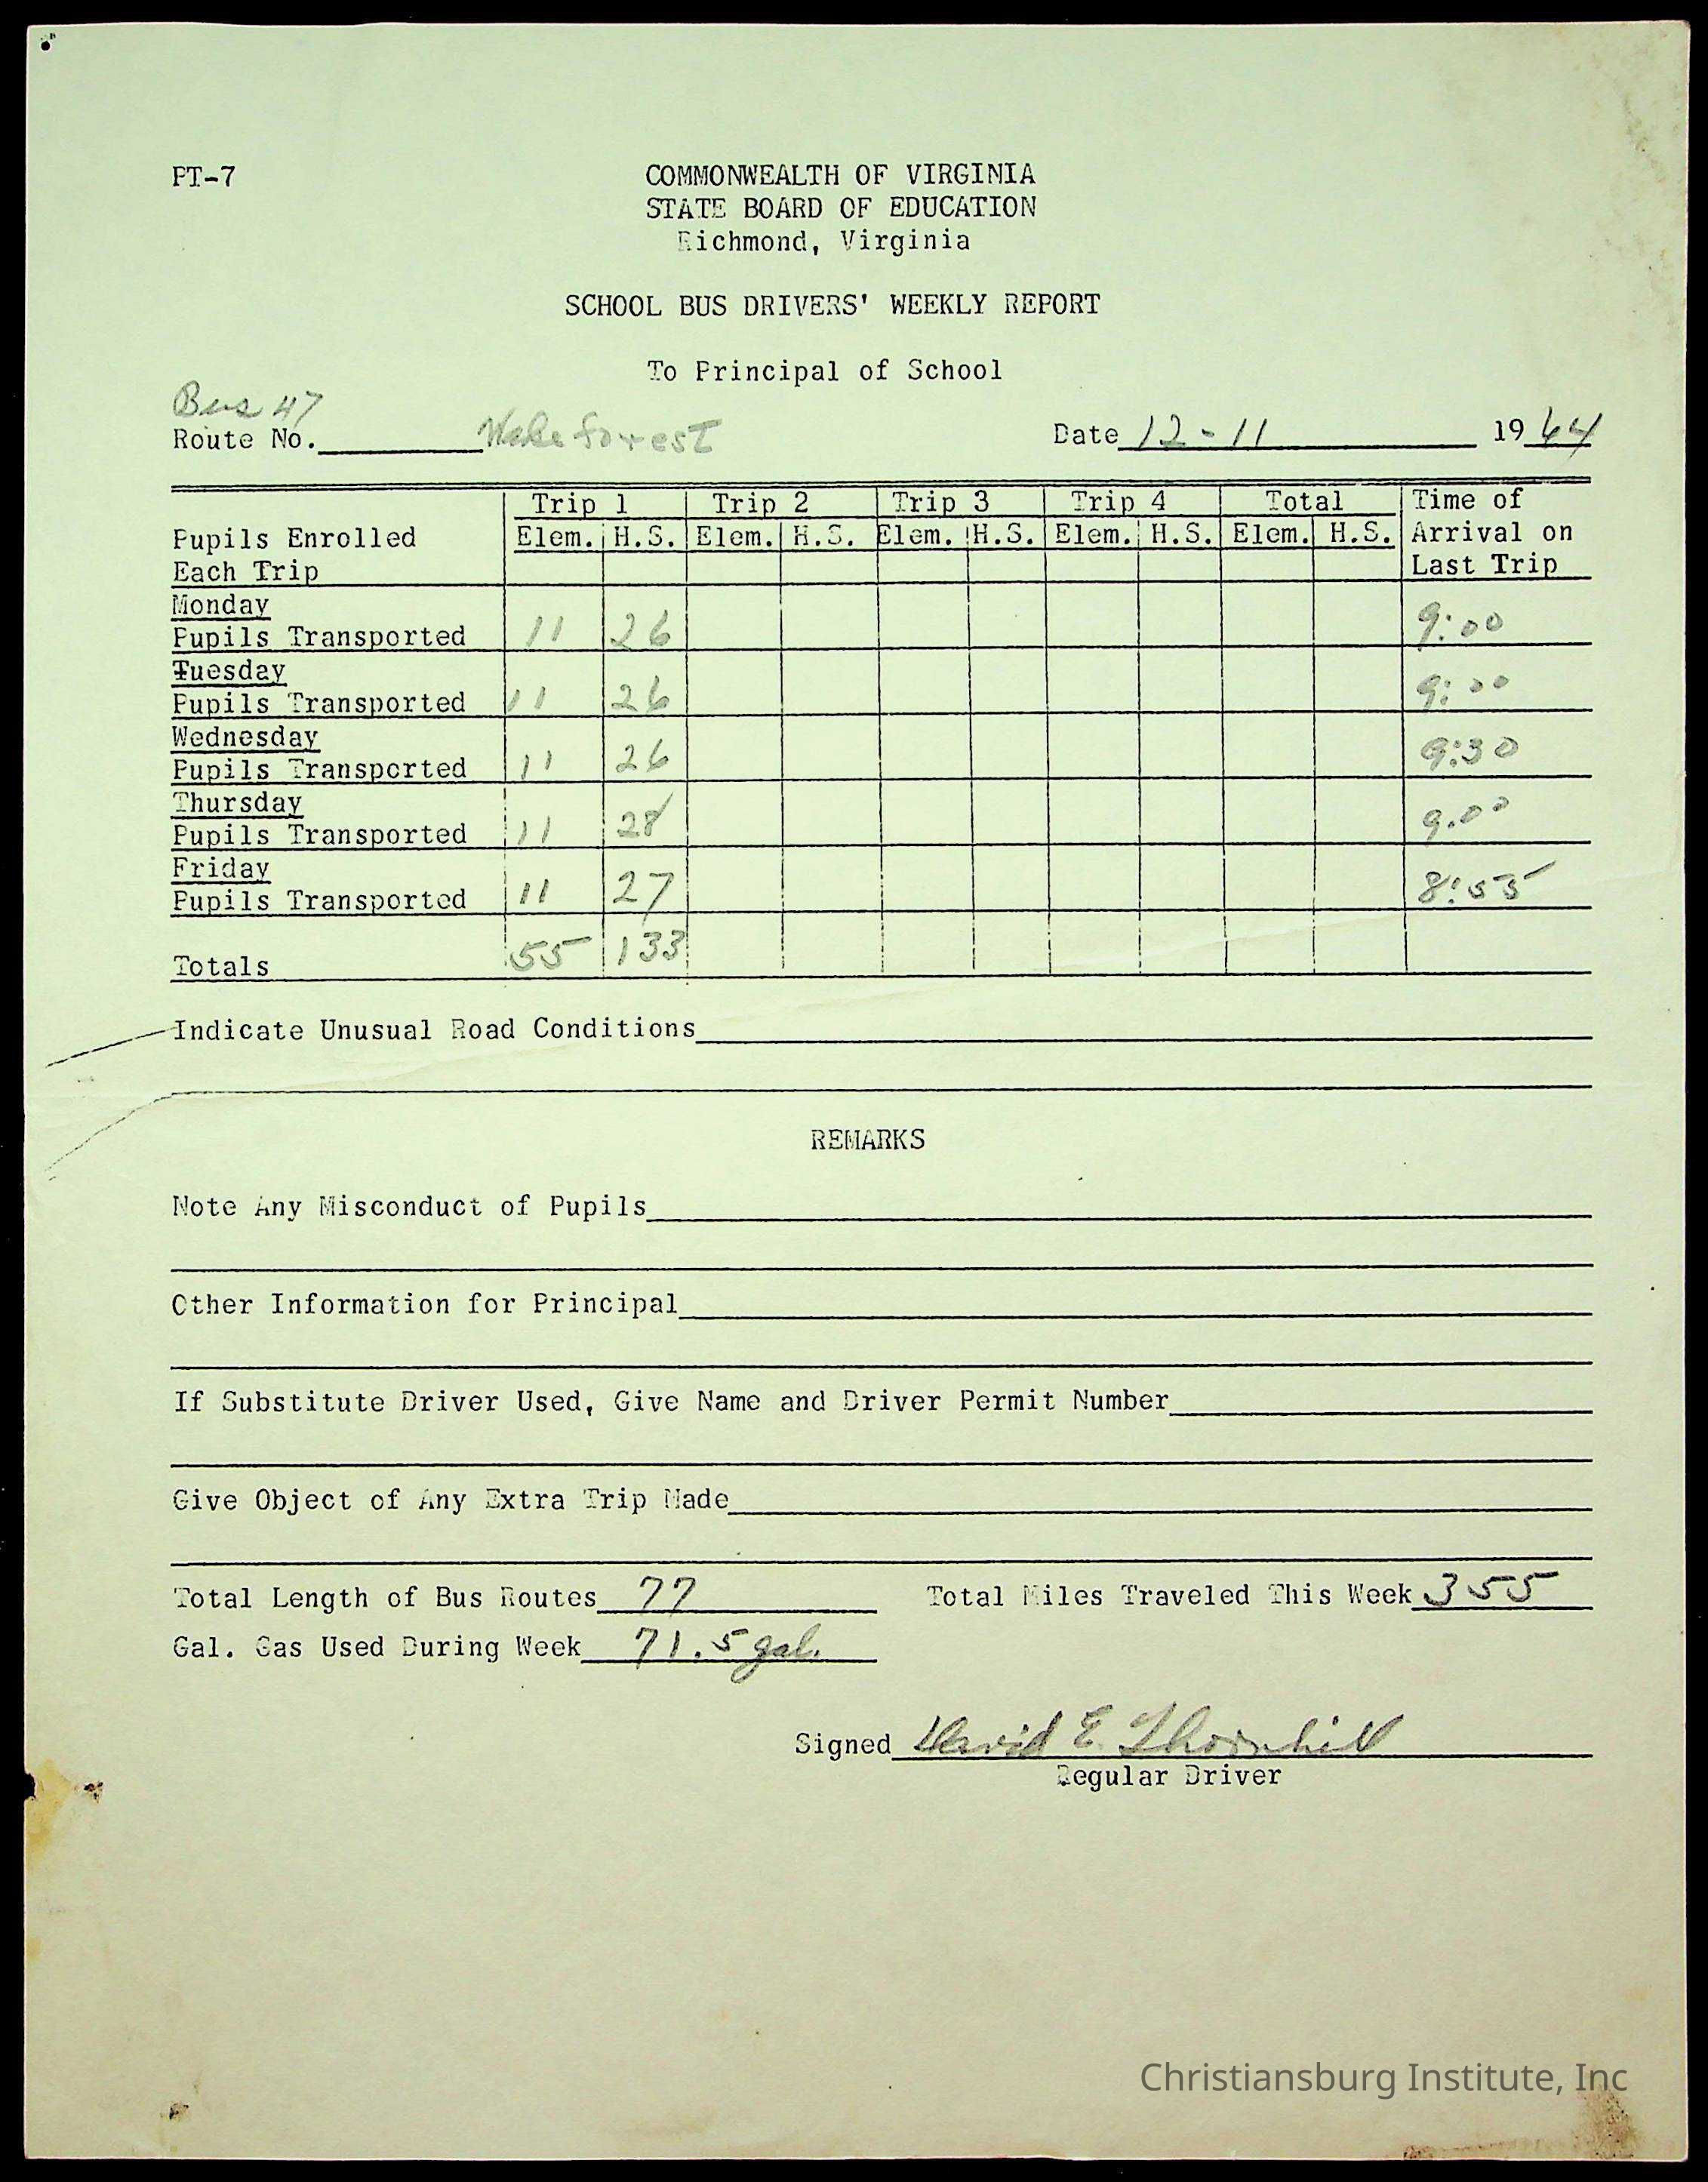 PT-7
COMMONWEALTH OF VIRGINIA
STATE BOARD OF EDUCATION
Richmond, Virginia
SCHOOL BUS DRIVERS' WEEKLY REPORT
To Principal of School
Bus 47
Route No. Wake forest Date 12-11 1964
Trip 1 Trip 2 Trip 3 Trip 4 Total Time of
Pupils Enrolled Elem. H.S. Elem. H.S. Elem. H.S. Elem. H.S. Elem. H.S. Arrival on
Each Trip Last Trip
Monday
Pupils Transported 11 26 9:00
Tuesday
Pupils Transported 11 26 9:00
Wednesday
Pupils Transported 11 26 9:30
Thursday
Pupils Transported 11 28 9.00
Friday
Pupils Transported 11 27 8:55
Totals 55 133
Indicate Unusual Road Conditions
REMARKS
Note Any Misconduct of Pupils
Other Information for Principal
If Substitute Driver Used, Give Name and Driver Permit Number
Give Object of Any Extra Trip Made
Total Length of Bus Routes 77 Total Miles Traveled This Week 355
Gal. Gas Used During Week 71.5 gal.
Signed David E. Thornhill
Regular Driver
Christiansburg Institute, Inc